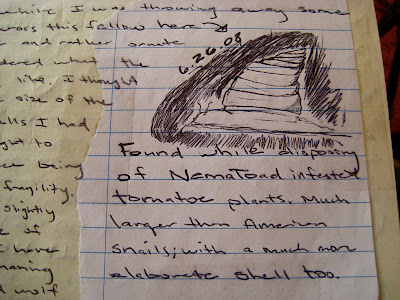 while I was throwing away some
across this fellow here
and rather ornate
wondered what the
like I thought
size of the
I had
to
being
fragility.
slightly
of
have
6.26.08
Found while disposing
of Nematoad infested
tomatoe plants. Much
larger than American
snails; with a much more
elaborate shell too.